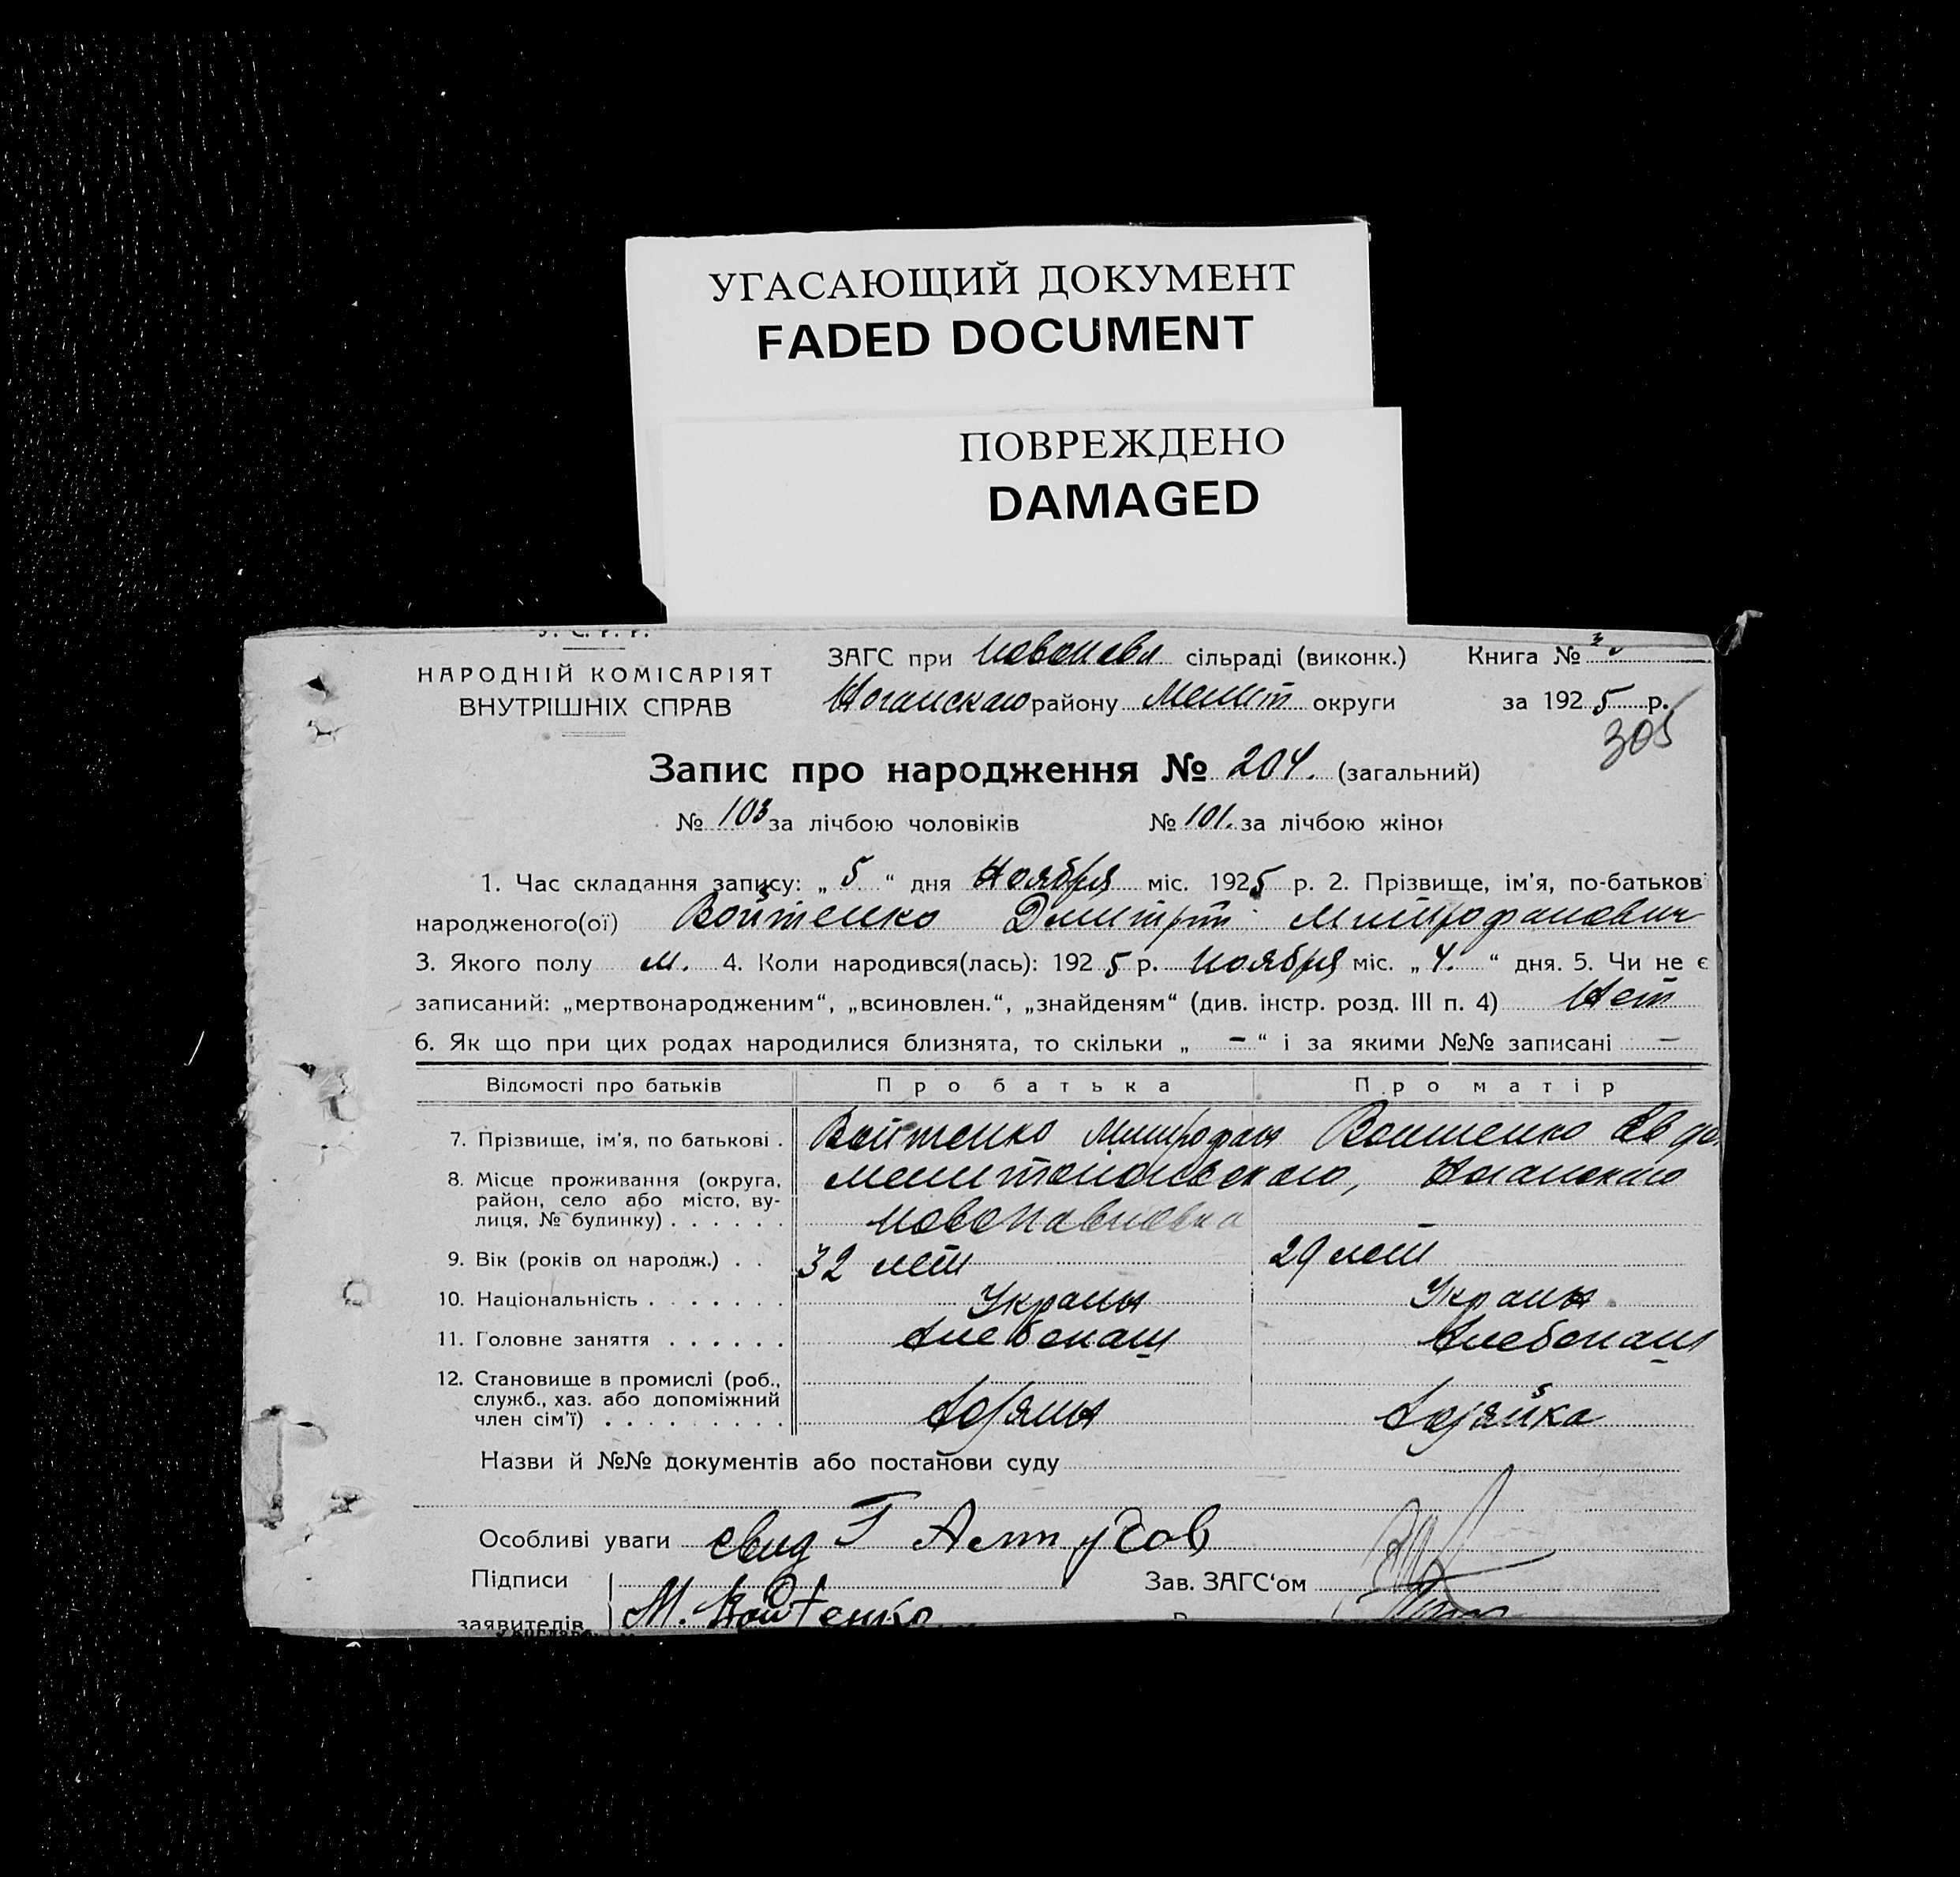 УГАСАЮЩИЙ ДОКУМЕНТ
FADED DOCUMENT
ПОВРЕЖДЕНО
DAMAGED
У. С. Р. Р.
НАРОДНІЙ КОМІСАРІЯТ
ВНУТРІШНІХ СПРАВ
ЗАГС при Новопавл сільраді (виконк.) Книга №
Ногайскаго району Мелит округи за 1925 р.
305
Запис про народження № 204. (загальний)
№ 103 за лічбою чоловіків № 101. за лічбою жіно
1. Час складання запису: „ 5 “ дня Ноября міс. 1925 р. 2. Прізвище, ім'я, по-батьков
народженого(ої) Войтенко Дмитрий Митрофанович
3. Якого полу м. 4. Коли народився(лась): 1925 р. Ноября міс. „ 4. “ дня. 5. Чи не є
записаний: „мертвонародженим“, „всиновлен.“, „знайденям“ (див. інстр. розд. III п. 4) Нет
6. Як що при цих родах народилися близнята, то скільки „ - “ і за якими №№ записані -
Відомості про батьків Про батька Про матір
7. Прізвище, ім'я, по батькові . Войтенко Митрофан Войтенко Евдо
8. Місце проживання (округа, район, село або місто, вулиця, № будинку) . . . . . . Мелитопольского, Ногайского
Новопавловка -
9. Вік (років од народж.) . . 32 лет 29 лет
10. Національність . . . . . . . Украин Украин
11. Головне заняття . . . . . . Хлебопаш Хлебопаш
12. Становище в промислі (роб., служб., хаз. або допоміжний член сім'ї) . . . . . . . . . Хозяин Хозяйка
Назви й №№ документів або постанови суду
Особливі уваги свид Г
Підписи Зав. ЗАГС‘ом
заявителів М. Войтенко